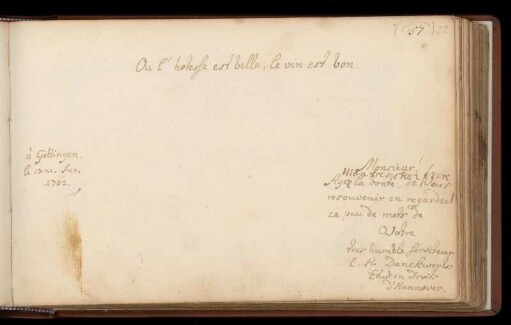 57
Ou l'hotesse est belle, le vin est bon.
à Gottingen.
le me. Jun.
1702.
Monsieur!
mon tres cher frere
Ayez la bonté, de Vous
resouvenir en regardent
ce peu de mots de
Votre
tres humble serviteur
Droit
d'Hannover.